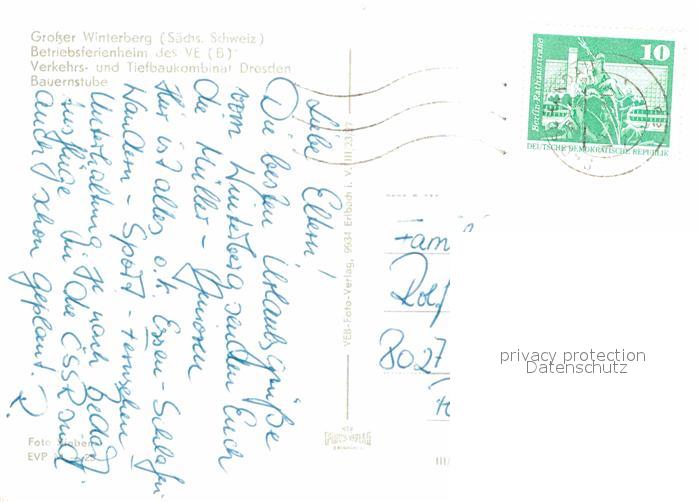 Großer Winterberg (Sächs. Schweiz)
Betriebsferienheim des VE (B)
Verkehrs- und Tiefbaukombinat Dresden
Bauernstube
Liebe Eltern!
Die besten Urlaubsgrüße
vom Winterberg senden Euch
die Müller-Junioren
Hier ist alles o.k. Essen - Schlafen
Wandern - Sport - Fernsehen
Unterhaltung je nach Bedarf.
Ausflüge in die ČSSR sind
auch schon geplant! R.
Foto
EVP
VEB-Foto-Verlag, 9934 Erlbach i. V.
III/
10
Berlin-Rathausstraße
DEUTSCHE DEMOKRATISCHE REPUBLIK
Fam
Rolf
8027
privacy protection
Datenschutz